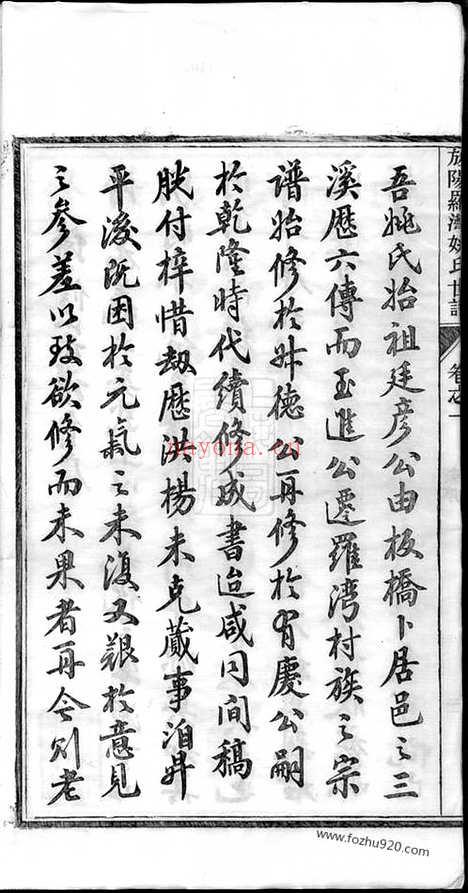 旌陽羅灣姚氏世譜
卷之一
吾姚氏始祖廷彥公由板橋卜居邑之三
溪歷六傳而玉進公遷羅灣村族之宗
譜始修於舜德公再修於有慶公嗣
於乾隆時代續修成書迨咸同間稿
脫付梓惜劫歷洪楊未克蕆事洎昇
平後既困於元氣之未復又艱於意見
之參差以致欲修而未果者再今則老
nayona.cn
www.fozhu920.com